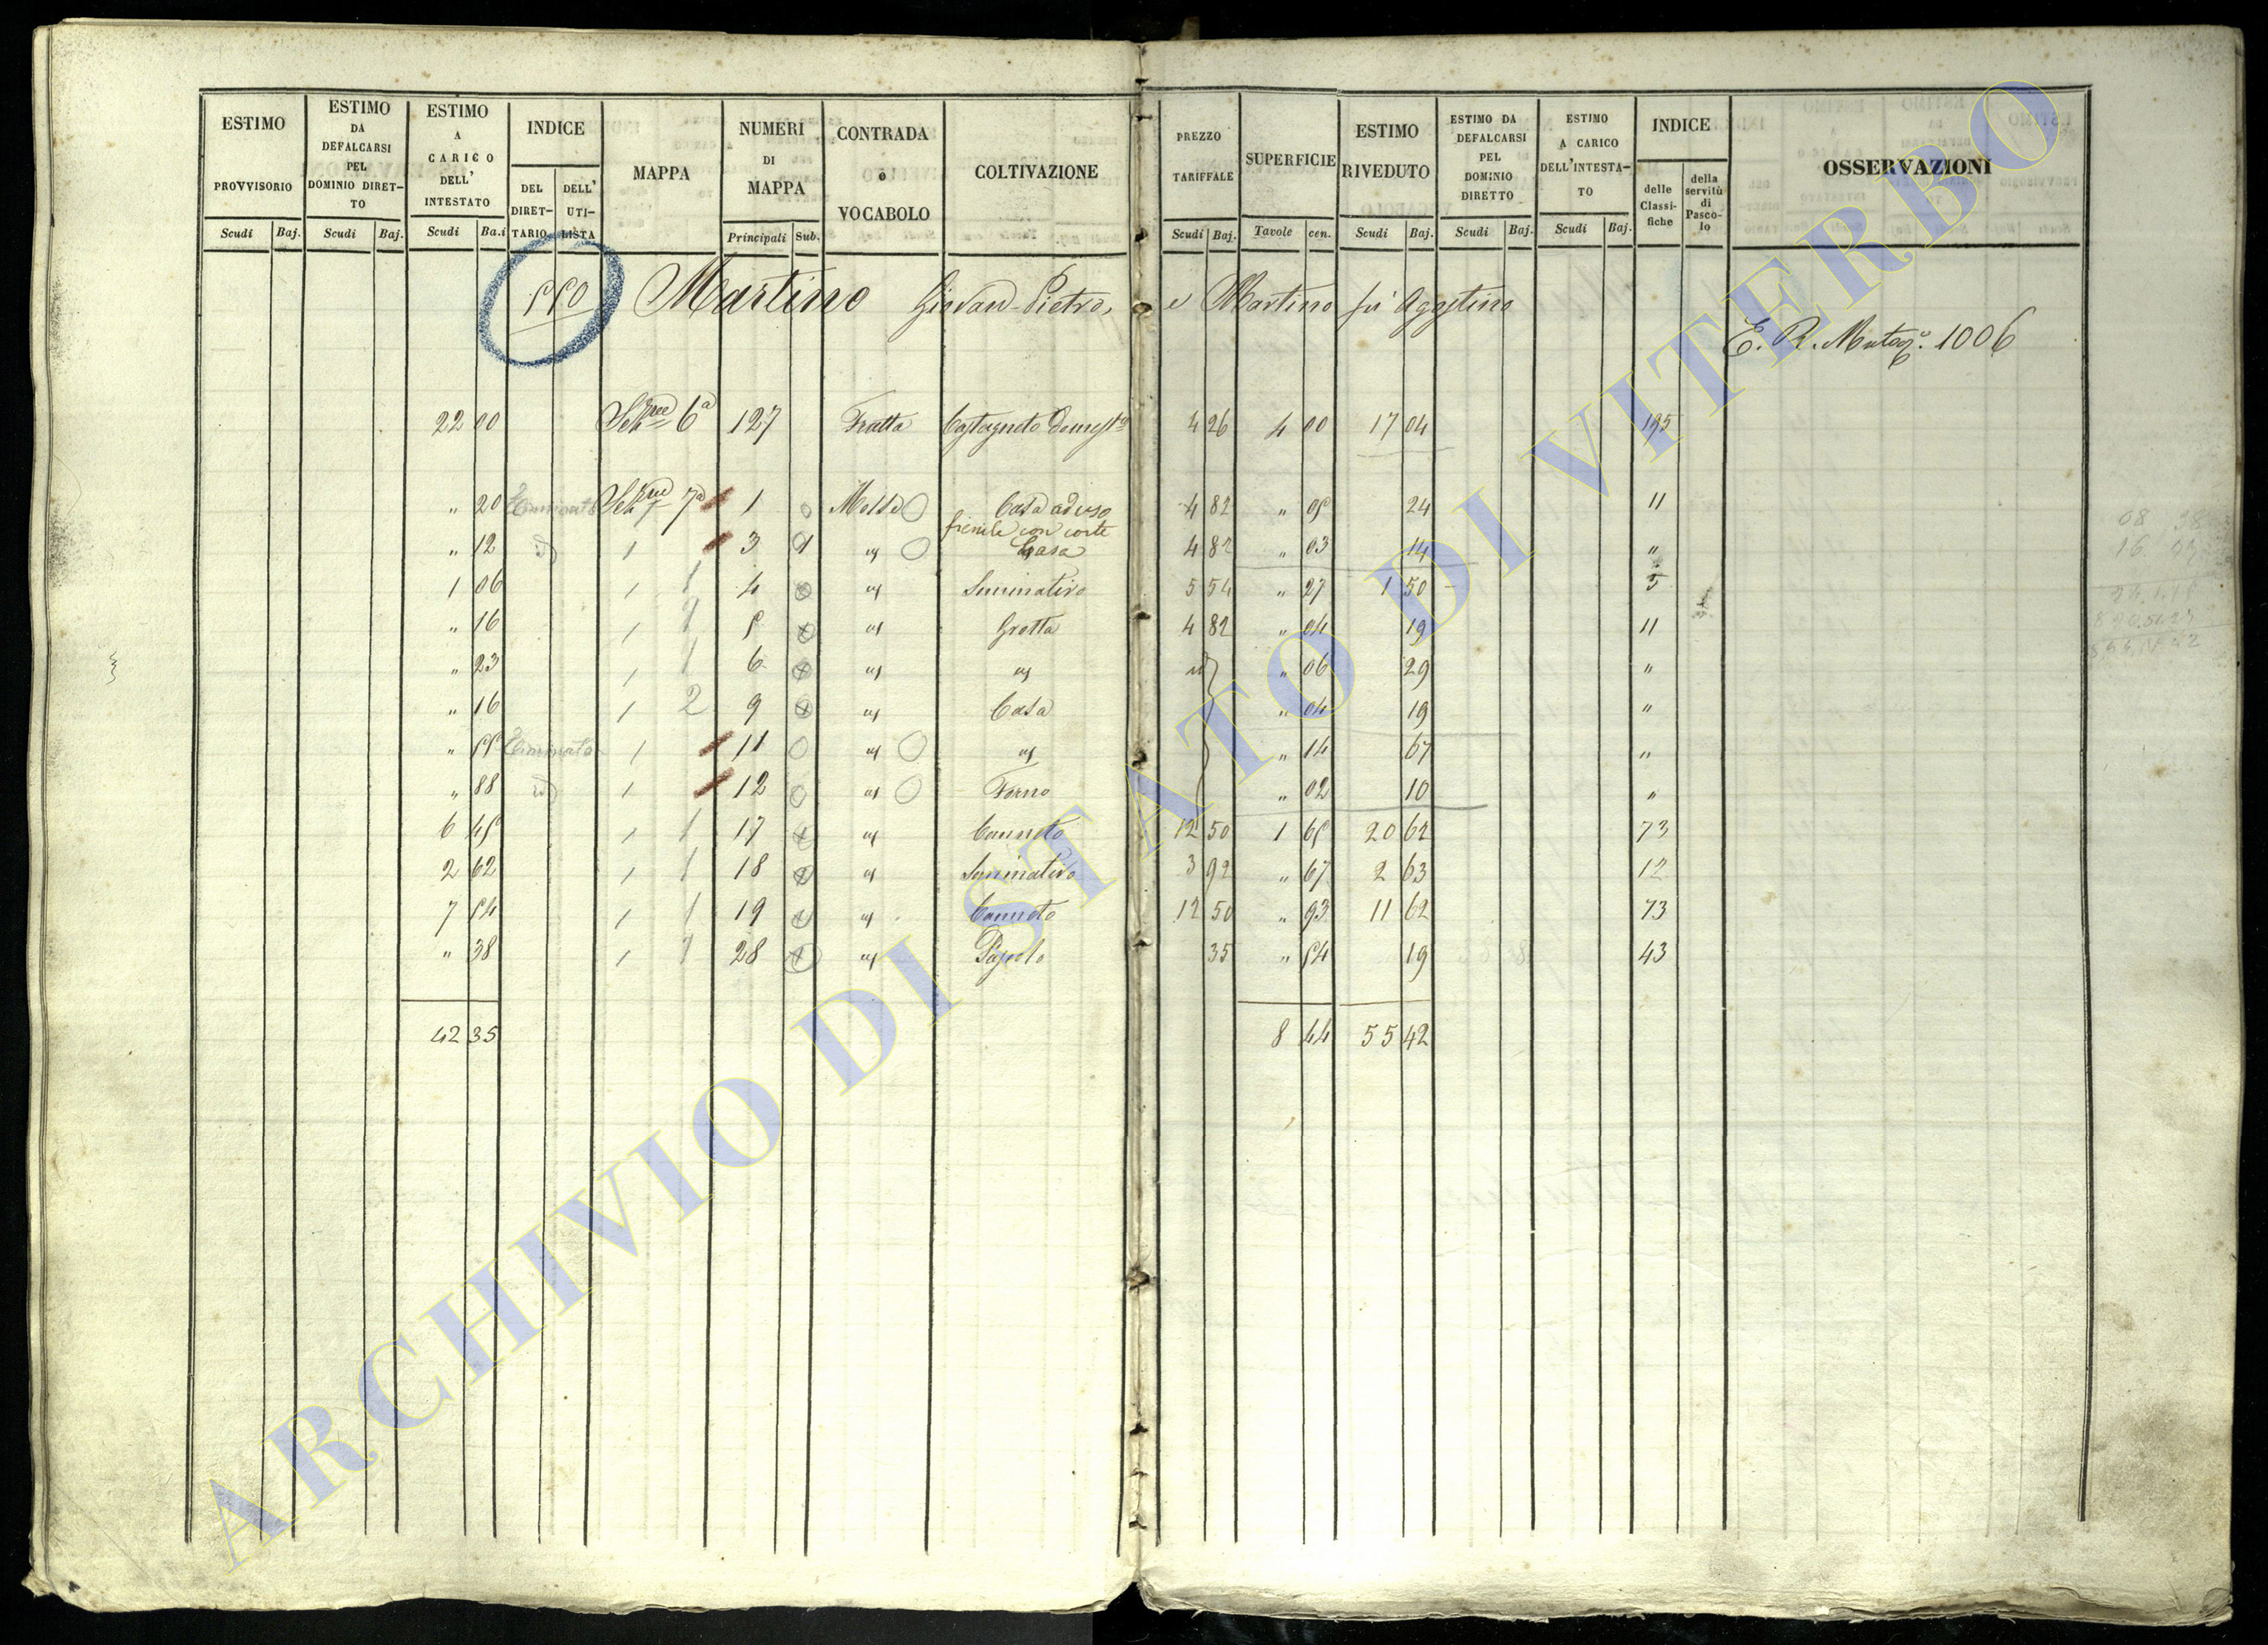 ESTIMO PROVVISORIO | ESTIMO DA DEFALCARSI PEL DOMINIO DIRETTO | ESTIMO A CARICO DELL' INTESTATO | INDICE | MAPPA | NUMERI DI MAPPA | CONTRADA o VOCABOLO | COLTIVAZIONE | PREZZO TARIFFALE | SUPERFICIE | ESTIMO RIVEDUTO | ESTIMO DA DEFALCARSI PEL DOMINIO DIRETTO | ESTIMO A CARICO DELL'INTESTATO | INDICE | OSSERVAZIONI
DEL DIRETTARIO | DELL' UTILISTA | delle Classifiche | della servitù di Pascolo
Scudi | Baj. | Scudi | Baj. | Scudi | Ba.i | Principali | Sub. | Scudi | Baj. | Tavole | cen. | Scudi | Baj. | Scudi | Baj. | Scudi | Baj.
550 Martino Giovan-Pietro, e Martino fu Agostino
E. R. 1006
22 00 6a 127 Fratta Castagneto 4 26 4 00 17 04 195
" 20 Eliminato 7a 1 Casa ad uso fienile con corte 4 82 " 05 24 11
" 12 id 3 1 Casa 4 82 " 03 14 "
1 06 1 4 Seminativo 5 54 " 27 1 50 5
" 16 1 5 Grotta 4 82 " 04 19 11
" 23 1 6 id " 06 29 "
" 16 2 9 Casa " 04 19 "
" 55 Eliminato 11 " 14 67 "
" 88 id 12 Forno " 02 10 "
6 45 1 17 Canneto 12 50 1 65 20 62 73
2 62 1 18 Seminativo 3 92 " 67 2 63 12
7 54 1 19 Canneto 12 50 " 93 11 62 73
" 38 1 28 Pascolo 35 " 54 19 43
42 35 8 44 55 42
ARCHIVIO DI STATO DI VITERBO